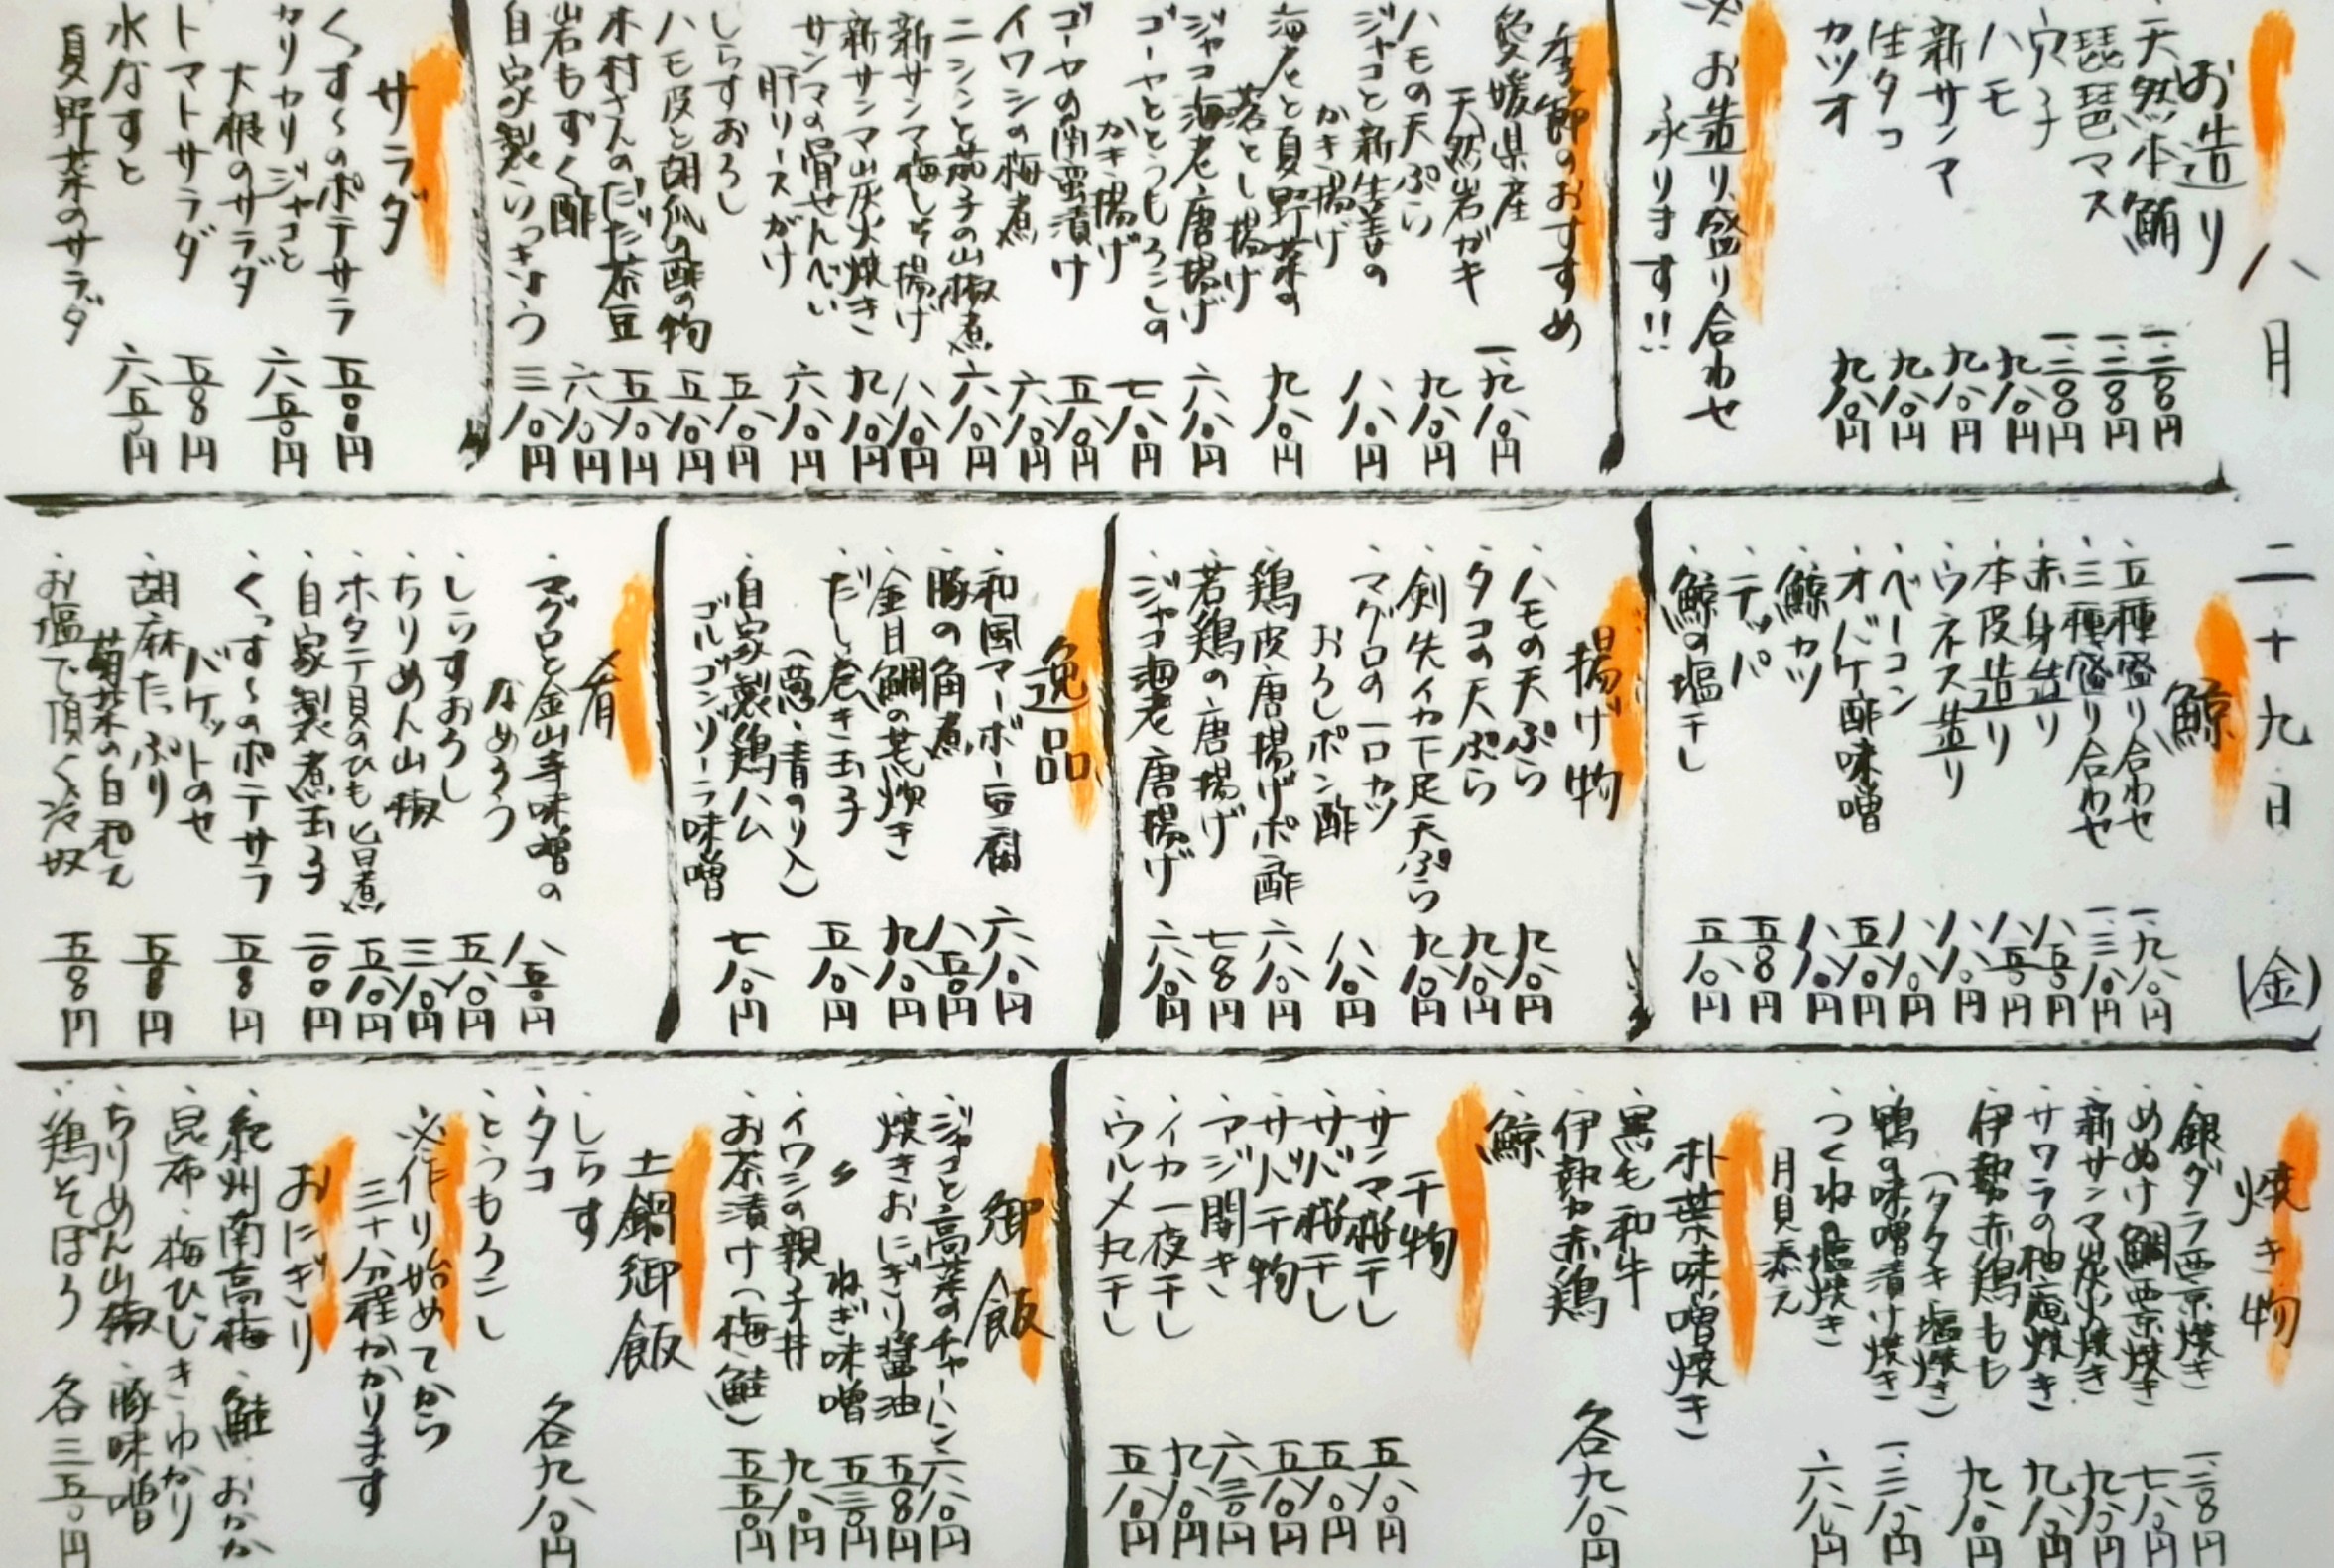 八月二十九日(金)
お造り
・天然本鮪 一、二〇〇円
琵琶マス 一、二〇〇円
穴子 一、二〇〇円
ハモ 九八〇円
新サンマ 九八〇円
生タコ 九八〇円
カツオ 九八〇円
※お造り盛り合わせ
承ります!!
季節のおすすめ
愛媛県産
天然岩ガキ 一、九八〇円
ハモの天ぷら 九八〇円
ジャコと新生姜の
かき揚げ 八八〇円
海老と夏野菜の
落とし揚げ 九八〇円
ジャコ海老唐揚げ 六八〇円
ゴーヤととうもろこしの
かき揚げ 七八〇円
ゴーヤの南蛮漬け 五八〇円
イワシの梅煮 六八〇円
ニシンと茄子の山椒煮 六八〇円
新サンマ梅しそ揚げ 八八〇円
新サンマ山炭火焼き 九八〇円
サンマの骨せんべい
肝リースがけ 六八〇円
しらすおろし 五八〇円
ハモ皮と胡瓜の酢の物 五八〇円
木村さんのだだ茶豆 五八〇円
岩もずく酢 六八〇円
自家製らっきょう 三八〇円
サラダ
くっす〜のポテサラ 五〇〇円
カリカリジャコと
大根のサラダ 六五〇円
トマトサラダ 五〇〇円
水なすと
夏野菜のサラダ 六五〇円
鯨
・五種盛り合わせ 一、九八〇円
・三種盛り合わせ 一、三八〇円
・赤身造り 八五〇円
・本皮造り 八五〇円
・ウネス造り 八八〇円
・ベーコン 八八〇円
・オバケ酢味噌 五八〇円
・鯨カツ 八八〇円
・テッパ 五五〇円
・鯨の塩干し 五八〇円
揚げ物
・ハモの天ぷら 九八〇円
・タコの天ぷら 九八〇円
・剣先イカ下足天ぷら 九八〇円
・マグロの一口カツ
おろしポン酢 八八〇円
・鶏皮唐揚げポン酢 六八〇円
・若鶏の唐揚げ 七〇〇円
・ジャコ海老唐揚げ 六八〇円
逸品
・和風マーボー豆腐 六八〇円
・豚の角煮 八五〇円
・金目鯛の荒炊き 九八〇円
・だし巻き玉子
(葱・青のり入) 五八〇円
・自家製鶏ハム
ゴルゴンゾーラ味噌 七八〇円
肴
・マグロと金山寺味噌の
なめろう 八五〇円
・しらすおろし 五八〇円
・ちりめん山椒 三八〇円
・ホタテ貝のひも旨煮 五八〇円
・自家製煮玉子 二〇〇円
・くっす〜のポテサラ
バケットのせ 五五〇円
・胡麻たっぷり
菊菜の白和え 五五〇円
・お塩で頂く冷奴 五五〇円
焼き物
・銀ダラ西京焼き 一、二〇〇円
・めぬけ鯛西京焼き 七八〇円
・新サンマ炭火焼き 九八〇円
・サワラの柚庵焼き 九八〇円
・伊勢赤鶏もも
(タタキ・塩焼き) 九八〇円
・鴨の味噌漬け焼き 一、三八〇円
・つくねの塩焼き
月見添え 六八〇円
朴葉味噌焼き
・黒毛和牛
・伊勢赤鶏
・鯨 各九八〇円
干物
・サンマ桜干し 五八〇円
・サバ桜干し 五八〇円
・サバ干物 五八〇円
・アジ開き 六三〇円
・イカ一夜干し 九八〇円
・ウルメ丸干し 五八〇円
御飯
・ジャコと高菜のチャーハン 六八〇円
・焼きおにぎり醤油 五〇〇円
〃 ねぎ味噌 五三〇円
・イワシの親子丼 九八〇円
・お茶漬け(梅・鮭) 五五〇円
土鍋御飯
・しらす
・タコ
・とうもろこし 各九八〇円
※作り始めてから
三十分程かかります
おにぎり
・紀州南高梅・鮭・おかか
・昆布・梅ひじき・ゆかり
・ちりめん山椒・豚味噌
・鶏そぼろ 各三五〇円